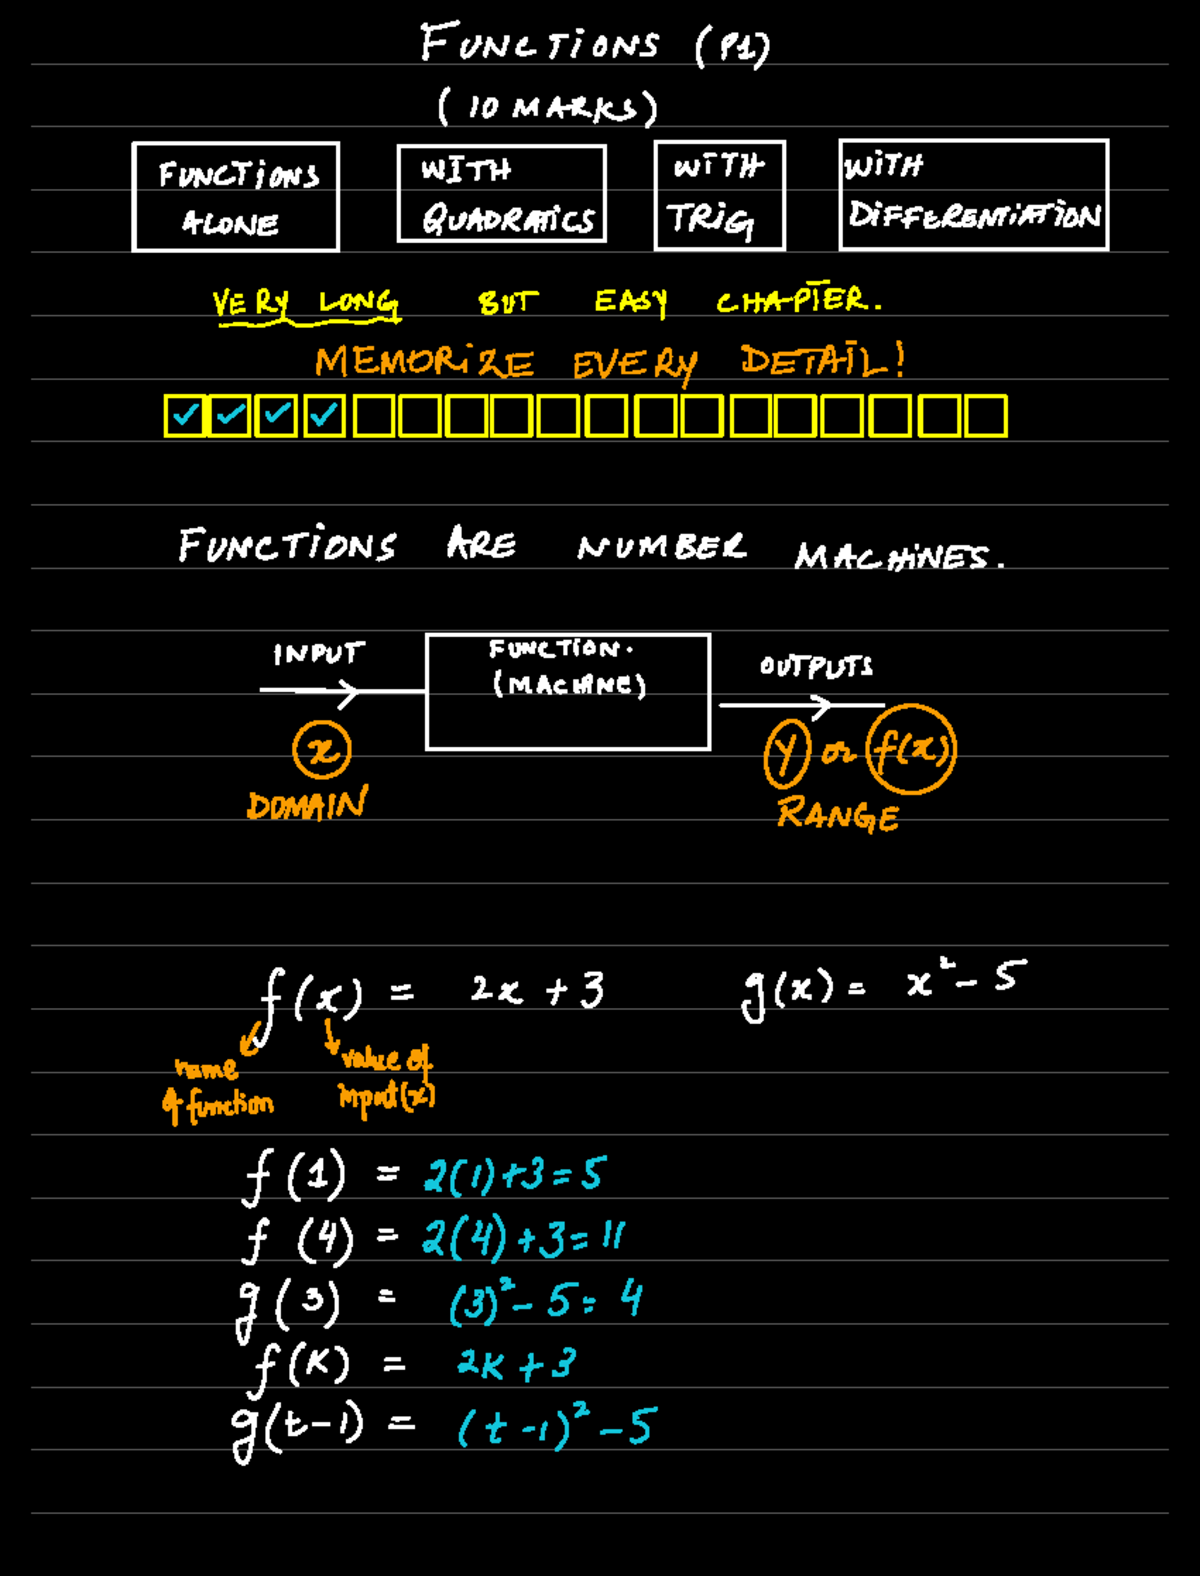 FUNCTIONS (P1)
(10 MARKS)
FUNCTIONS ALONE
WITH QUADRATICS
WITH TRIG
WITH DIFFERENTIATION
VERY LONG BUT EASY CHAPTER.
MEMORIZE EVERY DETAIL!
✓ ✓ ✓ ✓
FUNCTIONS ARE NUMBER MACHINES.
INPUT
FUNCTION.
(MACHINE)
OUTPUTS
x
y or f(x)
DOMAIN
RANGE
f(x) = 2x + 3 g(x) = x² - 5
name of function
value of input(x)
f(1) = 2(1)+3=5
f(4) = 2(4)+3=11
g(3) = (3)²-5=4
f(K) = 2K+3
g(t-1) = (t-1)²-5